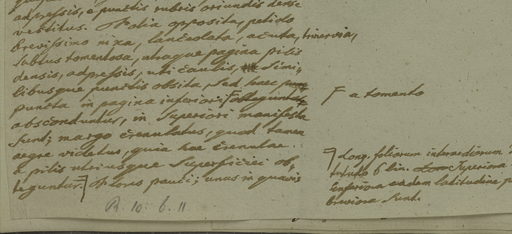 adpressis, e punctis rubris oriundis dense
vestitus. Folia opposita, petiolo
brevissimo nixa, lanceolata, acuta, trinervia,
subtus tomentosa, utraque pagina pilis
densis, adpressis, uti caulis, simi,,
libusque punctis obsita, sed haec
puncta in pagina inferiori F
absconduntur, in superiori manifesta
sunt; margo crenulatus, quod tamen
aegre videtur, quia hae crenulae
a pilis utriusque superficiei ob,,
teguntur. Flores pauci; unus in quavis
R. 10. 6. 11.
F a tomento
Long. foliorum intermediorum
6 lin. superiora
inferiora eadem latitudine
breviora sunt.